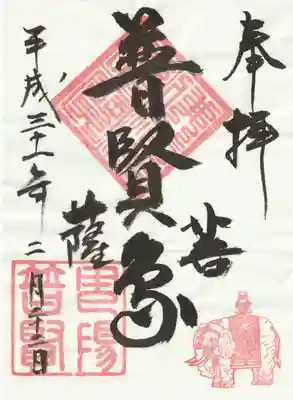 奉拝
普賢象
菩薩
平成三十一年二月二十二日
普賢